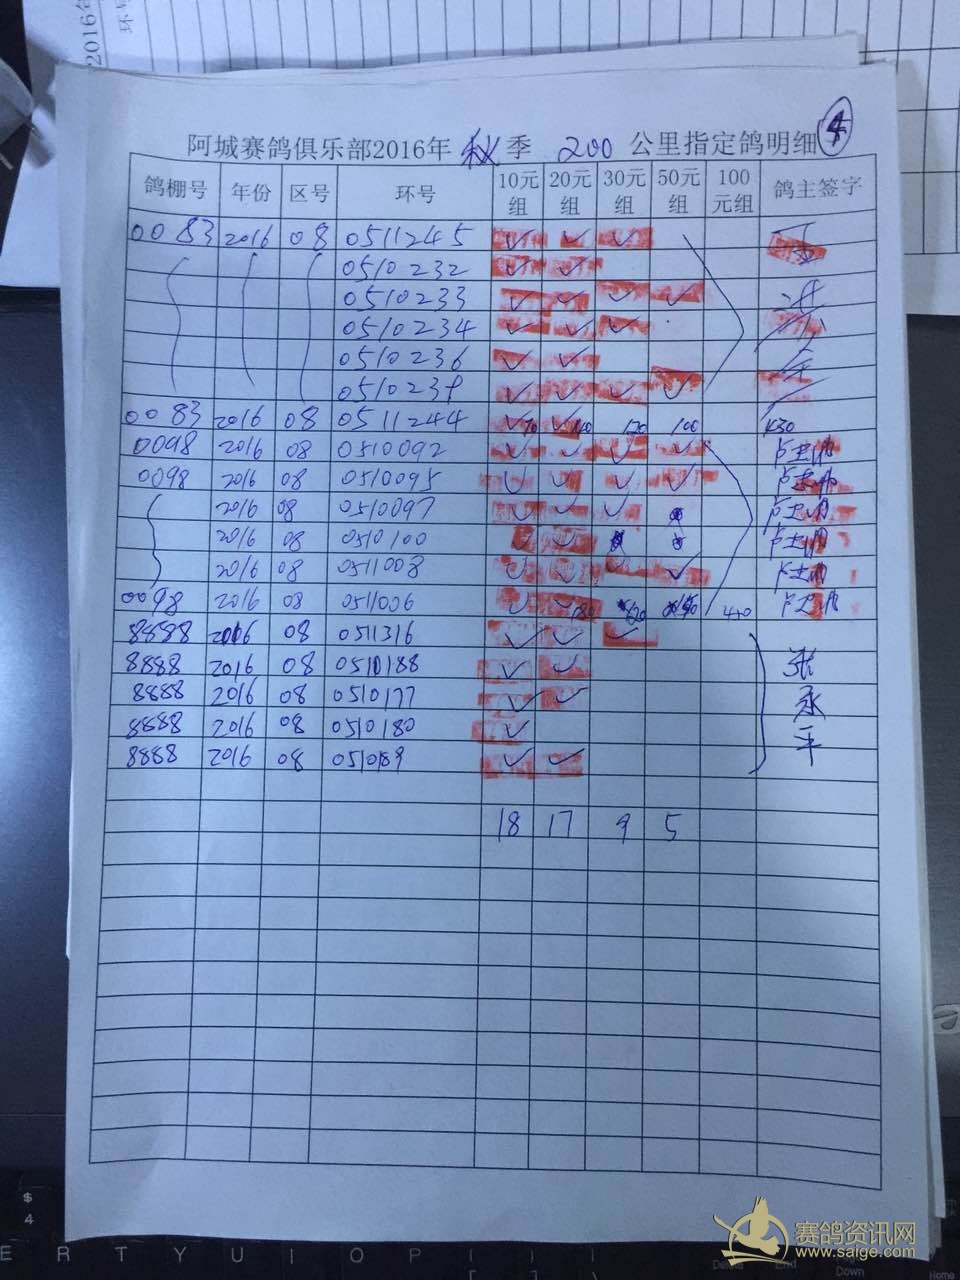 2016年
环号
阿城赛鸽俱乐部2016年 秋 季 200 公里指定鸽明细 4
鸽棚号 年份 区号 环号 10元组 20元组 30元组 50元组 100元组 鸽主签字
0083 2016 08 0511245 ✓ ✓ ✓
0510232 ✓ ✓
0510233 ✓ ✓ ✓ ✓
0510234 ✓ ✓ ✓
0510236 ✓ ✓
0510239 ✓ ✓ ✓ ✓
0083 2016 08 0511244 ✓70 ✓140 120 100 430
0098 2016 08 0510092 ✓ ✓ ✓ ✓
0098 2016 08 0510095 ✓ ✓ ✓ ✓
2016 08 0510097 ✓ ✓ ✓
2016 08 0510100 ✓ ✓
2016 08 0511008 ✓ ✓ ✓ ✓
0098 2016 08 0511006 ✓ ✓
8888 2016 08 0511316 ✓ ✓ ✓
8888 2016 08 0510188 ✓ ✓ 张
8888 2016 08 0510177 ✓ ✓ 永
8888 2016 08 0510180 ✓ 平
8888 2016 08 0510189 ✓ ✓
18 17 9 5
$
4
E R T Y U I O P
赛鸽资讯网
www.saige.com
Delete End Down
Home